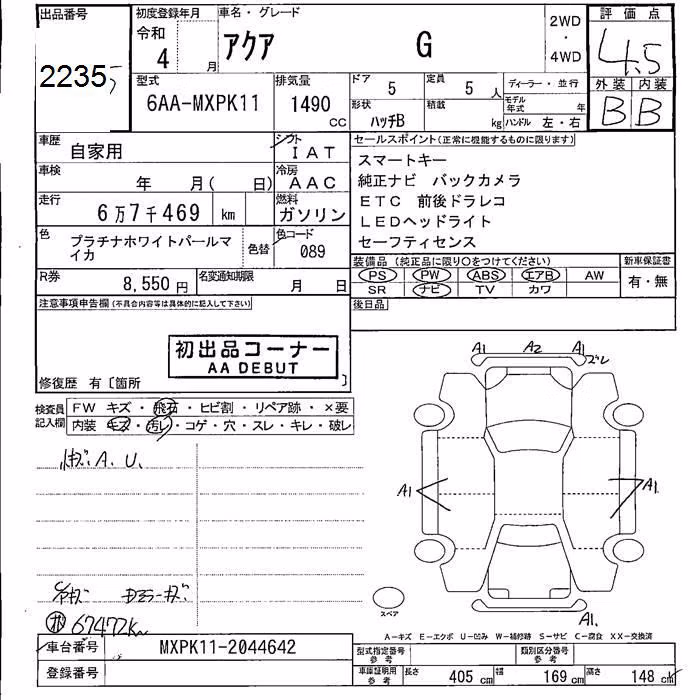 出品番号
2235
初度登録年月
令和
4 月
車名・グレード
アクア G
2WD
・
4WD
評価点
4.5
外装 内装
B B
型式
6AA-MXPK11
排気量
1490 CC
ドア 5
定員 5 人
ディーラー・並行
形状 ハッチB
積載 kg
モデル年式 年
ハンドル 左・右
車歴 自家用
シフト IAT
車検 年 月( 日)
冷房 AAC
走行 6万7千469 km
燃料 ガソリン
色 プラチナホワイトパールマイカ
色替
色コード 089
R券 8,550 円
名変通知期限 月 日
セールスポイント(正常に機能するものに限ります)
スマートキー
純正ナビ バックカメラ
ETC 前後ドラレコ
LEDヘッドライト
セーフティセンス
装備品(純正品に限り○をつけてください)
PS PW ABS エアB AW
SR ナビ TV カワ
新車保証書
有・無
後日品
注意事項申告欄(不具合内容等は具体的に記入して下さい)
初出品コーナー
AA DEBUT
修復歴 有〔箇所 〕
検査員記入欄
FW キズ・飛石・ヒビ割・リペア跡・×要
内装・キズ・汚レ・コゲ・穴・スレ・キレ・破レ
A.U.
67472km
A1 A2 A1
ズレ
A1 A1.
A1.
スペア
A-キズ E-エクボ U-凹み W-補修跡 S-サビ C-腐食 XX-交換済
車台番号 MXPK11-2044642
登録番号
型式指定番号 参考
類別区分番号 参考
車庫証明用 参考
長さ 405 cm
幅 169 cm
高さ 148 cm